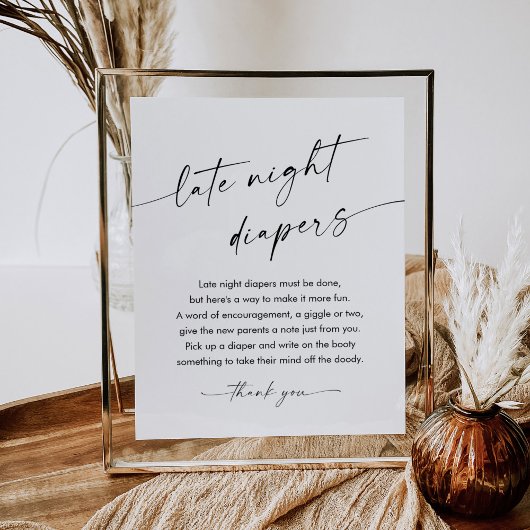 late night
diapers
Late night diapers must be done,
but here's a way to make it more fun.
A word of encouragement, a giggle or two,
give the new parents a note just from you.
Pick up a diaper and write on the booty
something to take their mind off the doody.
thank you